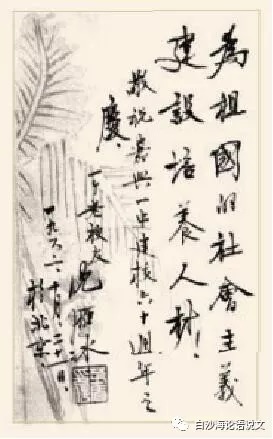 為祖國的社會主義
建設培養人材！
敬祝嘉興一中建校六十週年之
慶、
一个老校友 沈雁冰
一九六二、十月、二十一日、
於北京
白沙海论语说文